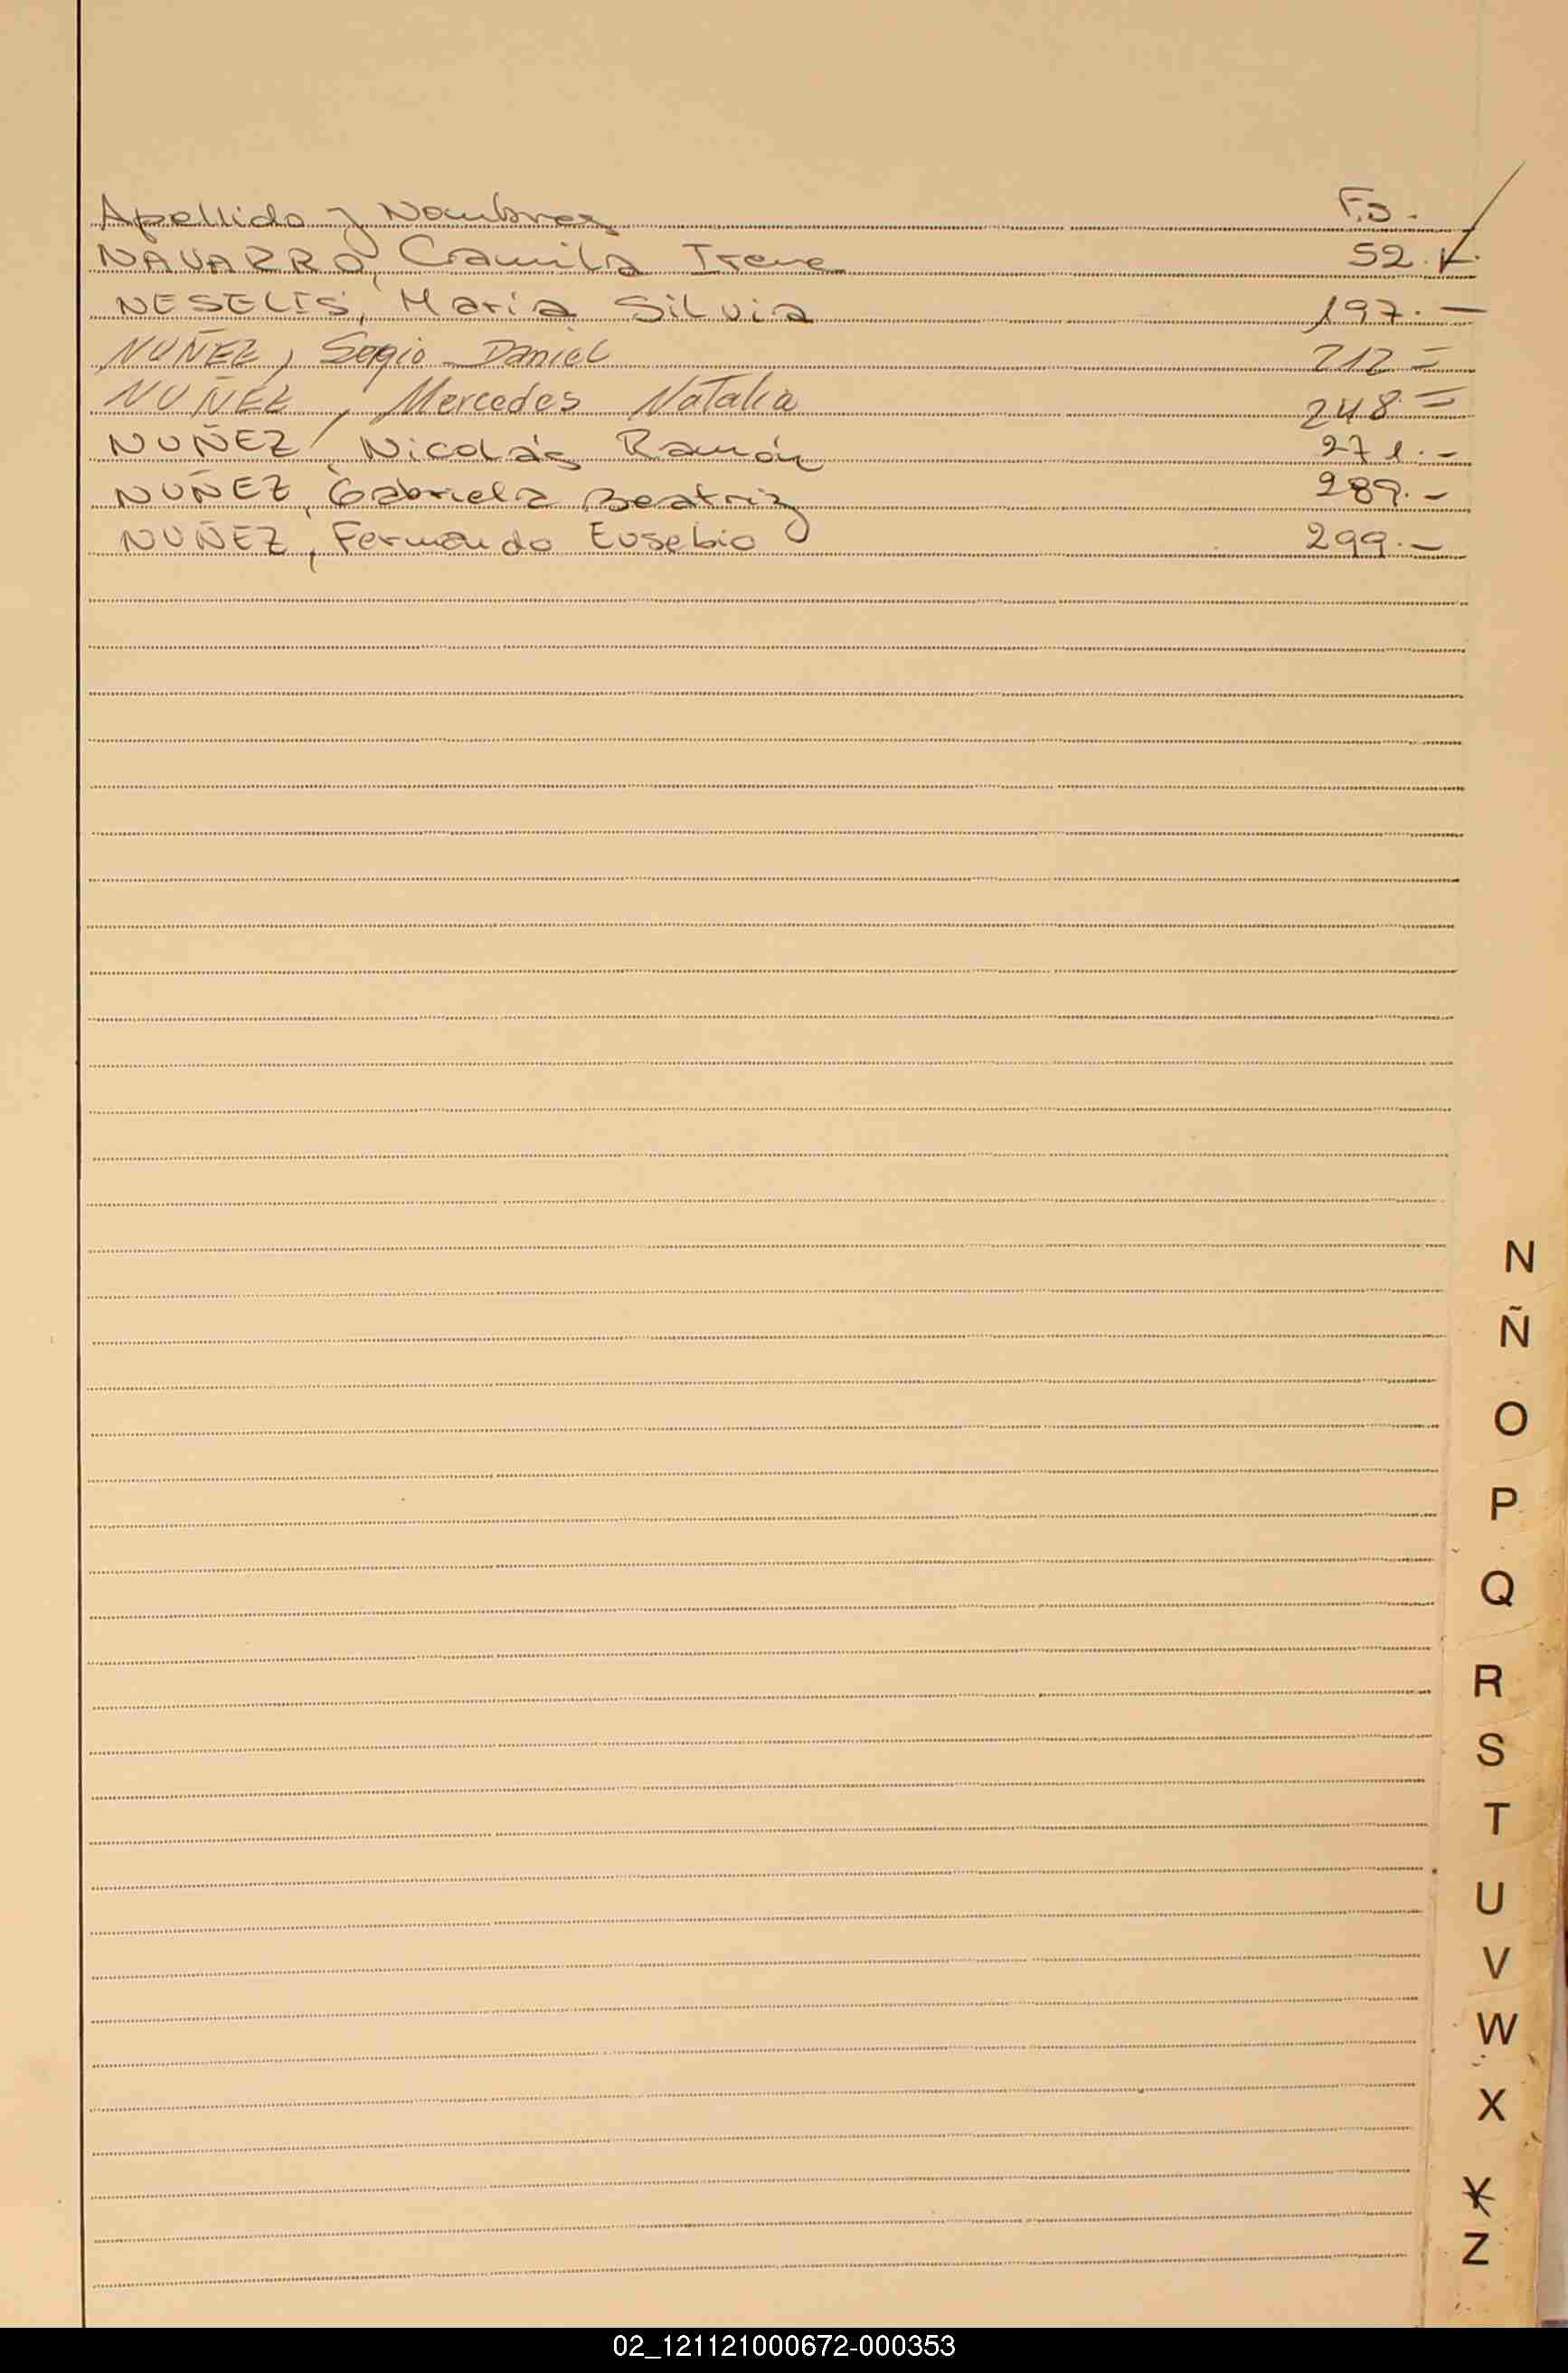 Apellido y Nombres Fs.
NAVARRO, Camila Irene 52.
NESELIS, María Silvia 197.-
NUÑEZ, Sergio Daniel 212=
NUÑEZ, Mercedes Natalia 248.=
NUÑEZ, Nicolás Ramón 271.-
NUÑEZ, Gabriela Beatriz 289.-
NUÑEZ, Fernando Eusebio 299.-
N
Ñ
O
P
Q
R
S
T
U
V
W
X
Y
Z
02_121121000672-000353